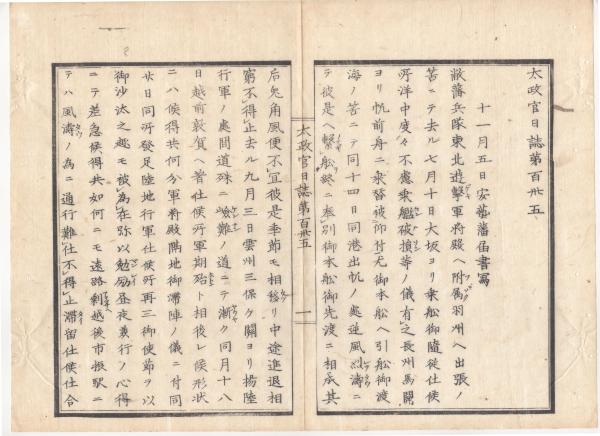 太政官日誌第百卅五
十一月五日安藝藩届書寫
敝藩兵隊東北遊擊軍將殿ヘ附属羽州ヘ出張ノ
苦ニテ去ル七月十日大坂ヨリ乗船御隨従仕候
所洋中度々不慮乗艦破損等ノ儀有之長州馬關
ヨリ帆前舟ニ乗替被仰付尤御本船ヘ引船御渡
海ノ苦ニテ同十四日同港出帆ノ處逆風烈濤ニ
テ彼是ヘ繋船終ニ奉別御本船御先渡ニ相承其
太政官日誌第百卅五
一
后兎角風便不宜彼是季節モ相後リ中途進退相
窮不得止去ル九月三日雲州三保ケ關ヨリ揚陸
行軍ノ處間道殊ニ嶮難ノ道ニテ漸ク同月十八
日越前敦賀ヘ着仕候所軍期殆ト相後レ候形状
ニハ候得共何分軍將殿隔地御滞陣ノ儀ニ付同
廿日同所發足陸地行軍仕候所再三御使節ヲ以
御沙汰之趣モ被為在旁以勉励昼夜兼行ノ心得
ニテ差急候得共如何ニモ遠路剰越後市振駅ニ
テハ風濤ノ為ニ通行難仕不得止滞留仕候仕合